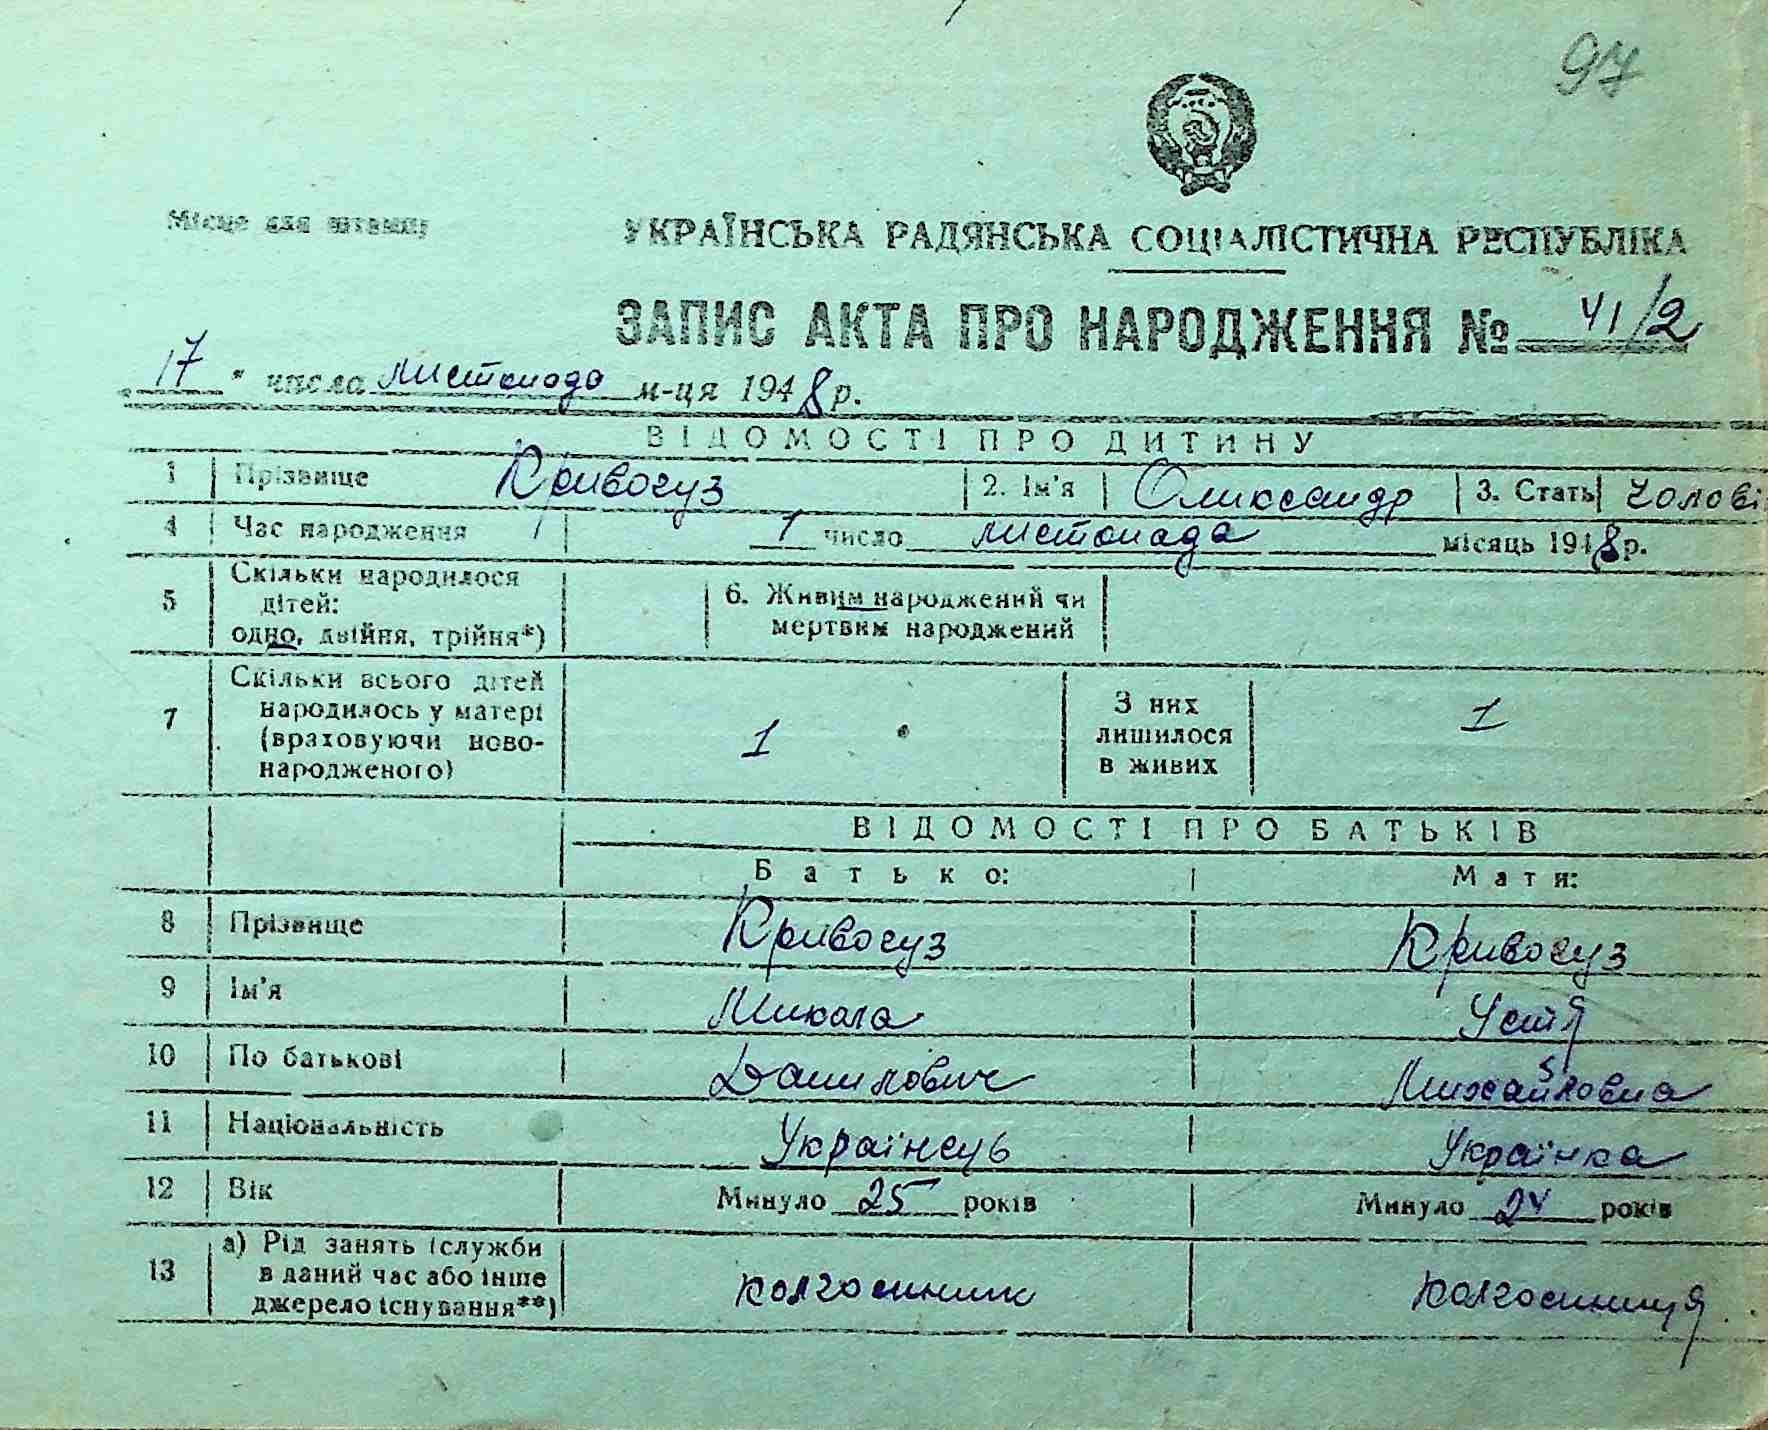 97
Місце для штампу
УКРАЇНСЬКА РАДЯНСЬКА СОЦІАЛІСТИЧНА РЕСПУБЛІКА
ЗАПИС АКТА ПРО НАРОДЖЕННЯ № 41/2
„17" числа листопада м-ця 1948 р.
ВІДОМОСТІ ПРО ДИТИНУ
1 Прізвище Кривогуз 2. Ім'я Оликсандр 3. Стать чолові
4 Час народження 1 число листопада місяць 1948 р.
5 Скільки народилося дітей: одно, двійня, трійня*) 6. Живим народжений чи мертвим народжений
7 Скільки всього дітей народилось у матері (враховуючи новонародженого) 1 З них лишилося в живих 1
ВІДОМОСТІ ПРО БАТЬКІВ
Батько: Мати:
8 Прізвище Кривогуз Кривогуз
9 Ім'я Микола Устя
10 По батькові Данилович Михайловна
11 Національність Українець Українка
12 Вік Минуло 25 років Минуло 24 років
13 а) Рід занять (служби в даний час або інше джерело існування**) колгоспник колгоспниця